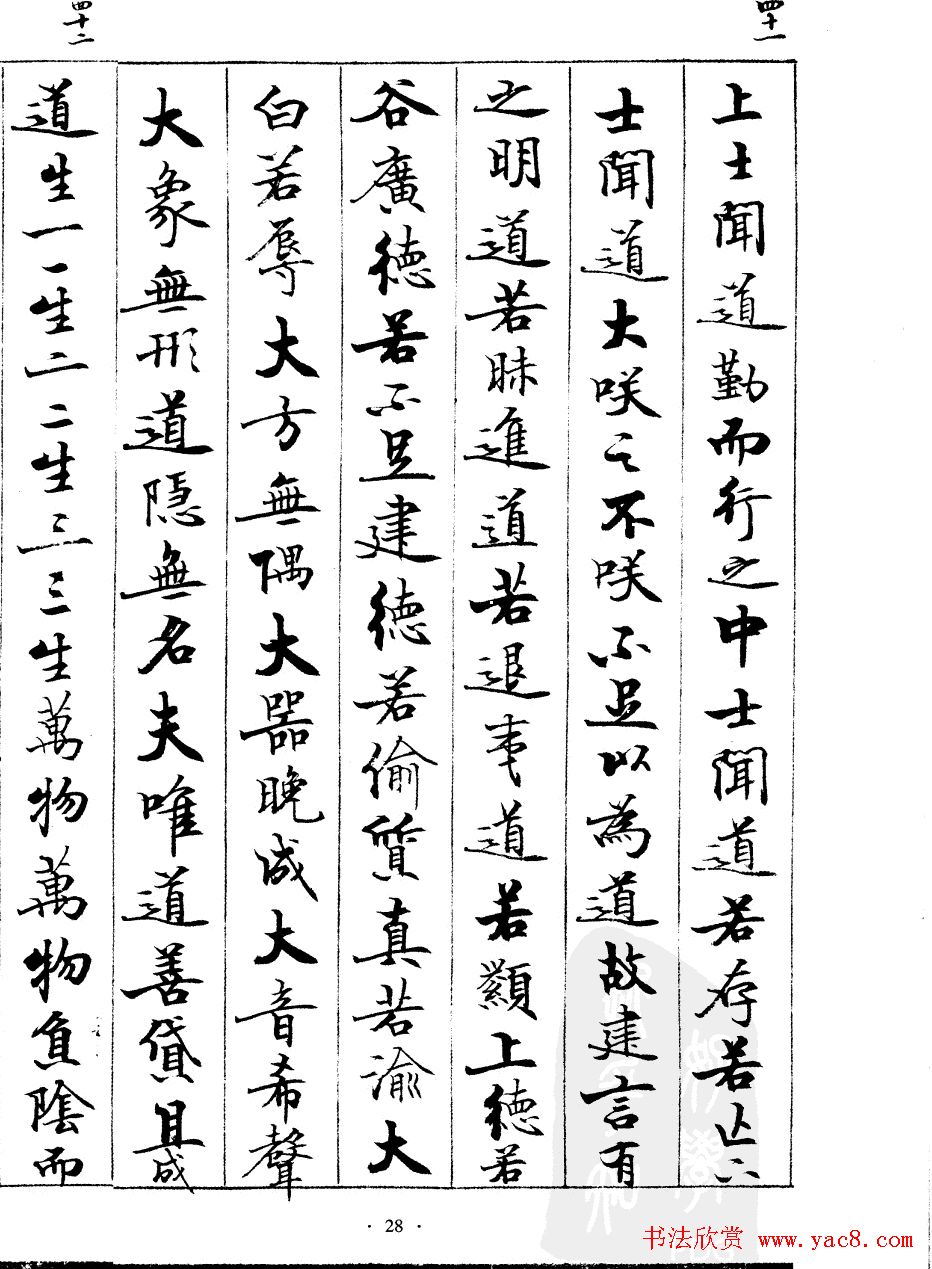 四十一
上士聞道勤而行之中士聞道若存若亡下
士聞道大咲之不咲不足以為道故建言有
之明道若昧進道若退夷道若纇上徳若
谷廣徳若不足建徳若偷質真若渝大
白若辱大方無隅大器晚成大音希聲
大象無形道隱無名夫唯道善貸且成
四十二
道生一一生二二生三三生萬物萬物負陰而
· 28 ·
书法欣赏 www.yac8.com